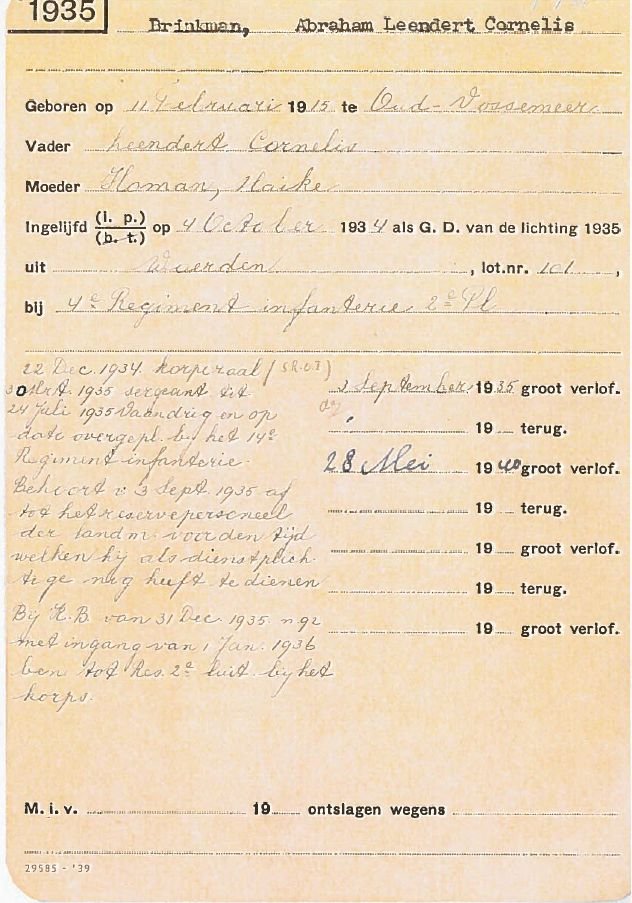 1935
Brinkman, Abraham Leendert Cornelis
Geboren op 11 Februari 1915 te Oud-Vossemeer
Vader Leendert Cornelis
Moeder Homan, Maike
Ingelijfd (l. p.) (b. t.) op 4 October 1934 als G. D. van de lichting 1935
uit Woerden, lot.nr. 101,
bij 4e Regiment infanterie 2e Pl
22 Dec. 1934. korporaal (S.R.O.I)
30 Mrt. 1935 sergeant tit.
24 Juli 1935 Vaandrig en op
dato overgepl. bij het 14e
Regiment infanterie.
Behoort v 3 Sept. 1935 af
tot het reservepersoneel
der landm. voor den tijd
welken hij als dienstplich
tige nog heeft te dienen
Bij K.B. van 31 Dec. 1935. n 92
met ingang van 1 Jan. 1936
ben. tot Res. 2e luit. bij het
korps.
3 September 1935 groot verlof.
19 terug.
28 Mei 1940 groot verlof.
19 terug.
19 groot verlof.
19 terug.
19 groot verlof.
M. i. v. 19 ontslagen wegens
29585 - '39